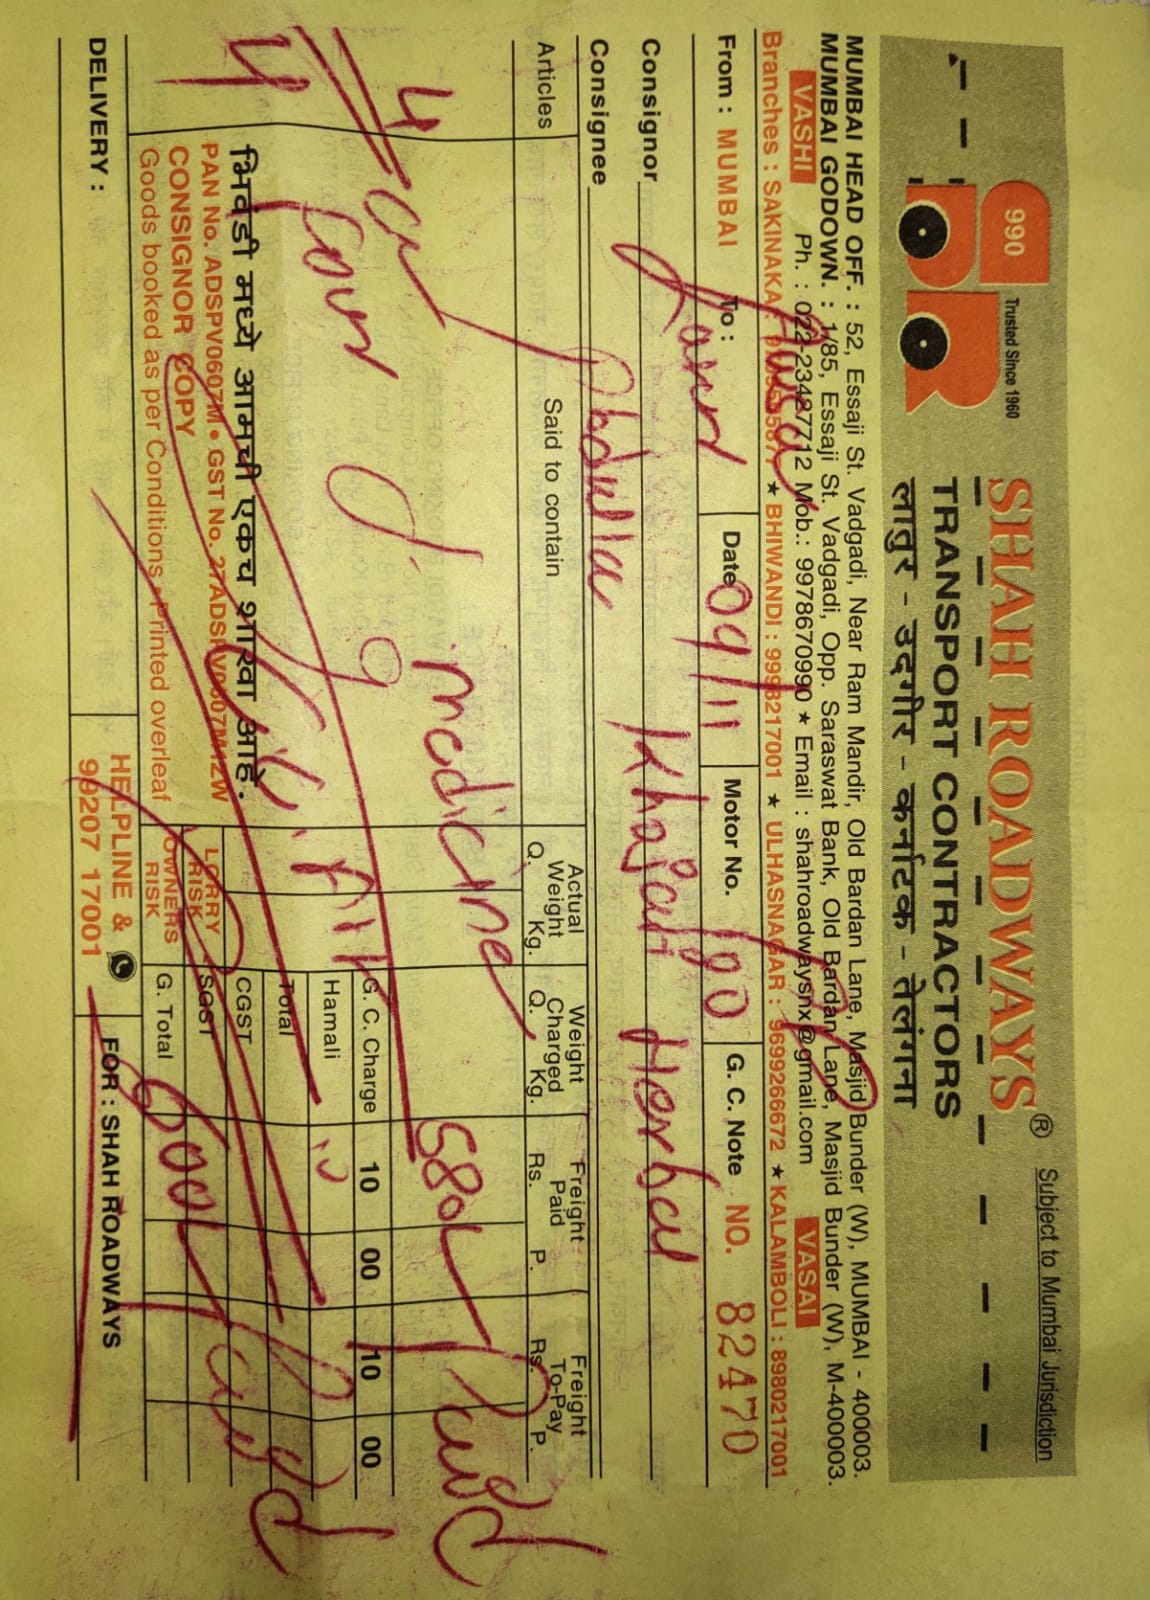 990
Trusted Since 1960
SHAH ROADWAYS ®
Subject to Mumbai Jurisdiction
TRANSPORT CONTRACTORS
लातुर - उदगीर - कर्नाटक - तेलंगना
MUMBAI HEAD OFF. : 52, Essaji St. Vadgadi, Near Ram Mandir, Old Bardan Lane, Masjid Bunder (W), MUMBAI - 400003.
MUMBAI GODOWN. : 1/85, Essaji St. Vadgadi, Opp. Saraswat Bank, Old Bardan Lane, Masjid Bunder (W), M-400003.
VASHI Ph. : 022-23427712 Mob.: 9978670990 ★ Email : shahroadwaysnx@gmail.com VASAI
Branches : SAKINAKA ★ BHIWANDI : 9998217001 ★ ULHASNAGAR : 9699266672 ★ KALAMBOLI : 8980217001
From : MUMBAI To : Date 09/11 Motor No. G. C. Note NO. 82470
Consignor Khajan Herbal
Consignee Abdulla
Articles Said to contain Actual Weight Q. Kg. Weight Charged Q. Kg. Freight Paid Rs. P. Freight To-Pay Rs. P.
4 medicine 580/- Paid
G. C. Charge 10 00 10 00
Hamali 10
Total
CGST
SGST
G. Total 600/- Paid
भिवंडी मध्ये आमची एकच शाखा आहे.
PAN No. ADSPV0607M • GST No. 27ADSPV0607M1ZW
CONSIGNOR COPY
Goods booked as per Conditions Printed overleaf
LORRY RISK
OWNERS RISK
DELIVERY :
HELPLINE &
99207 17001
FOR : SHAH ROADWAYS